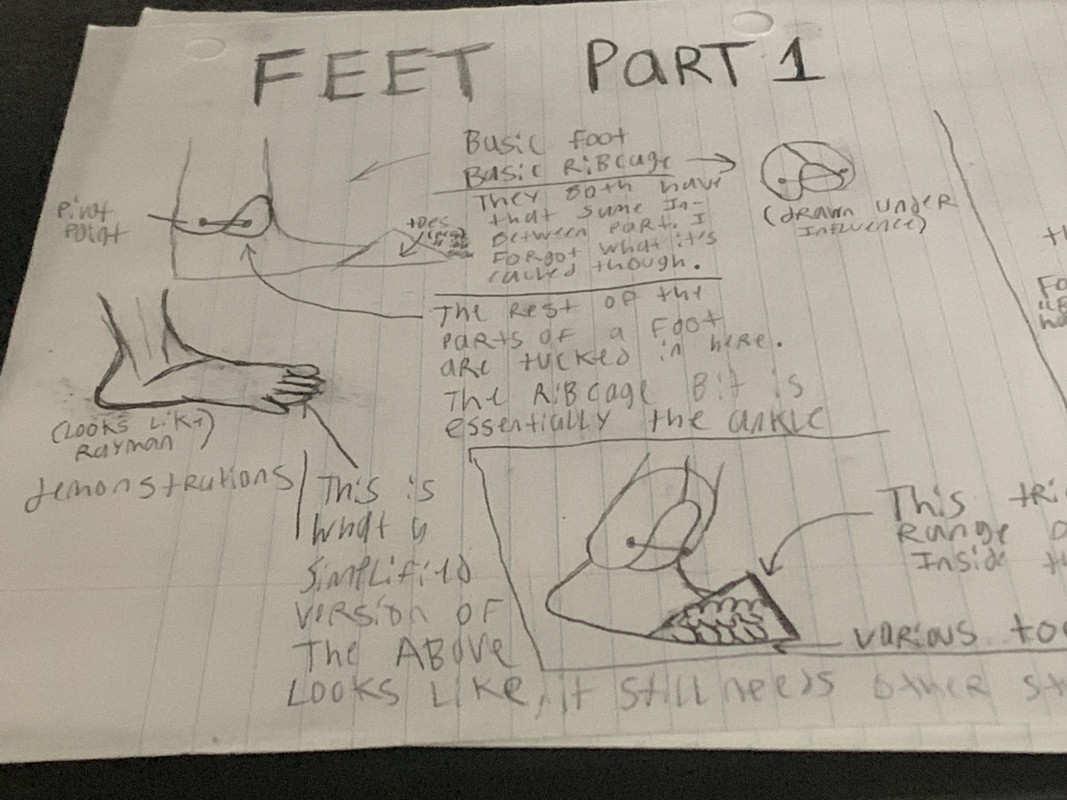 FEET PART 1
Basic foot
Basic RiBcage
They both have
that same In-
Between part. I
Forgot what it's
called though.
(drawn under
Influence)
Pivot
Point
toes
The Rest of the
parts of a Foot
are tucked in here.
The RiBcage Bit is
essentially the ankle
(Looks Like
Rayman)
demonstrations
This is
what a
simplified
version of
The Above
Looks Like, it still needs other st
This tri
Range
Inside t
various to
th
Fo